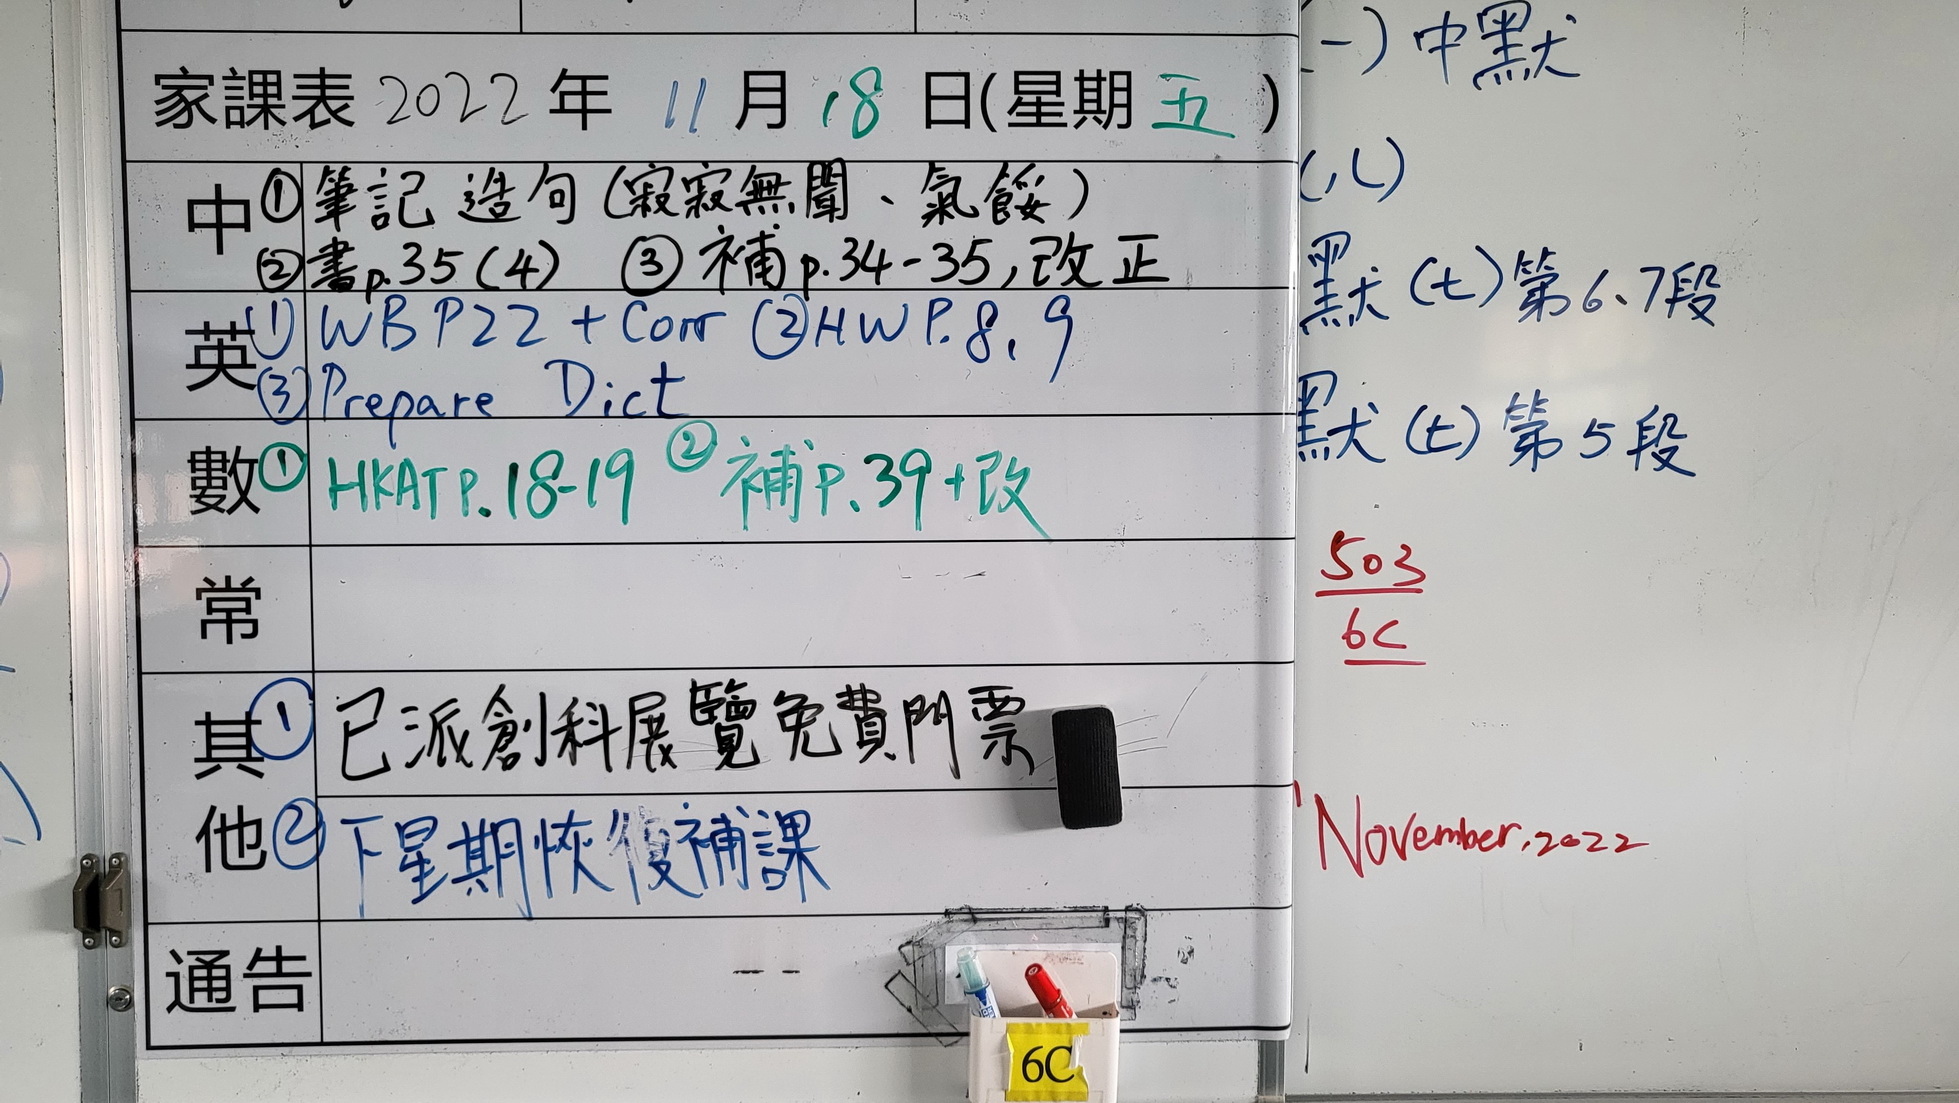 家課表 2022 年 11 月 18 日(星期 五 )
中 ① 筆記 造句 (寂寂無聞、氣餒)
② 書p.35(4) ③ 補p.34-35,改正
英 (1) WB P22 + Corr ② HW P.8, 9
③ Prepare Dict
數 ① HKAT P.18-19 ② 補P.39+改
常
其他 ① 已派創科展覽免費門票
② 下星期恢復補課
通告
6C
一) 中默
默 (七) 第6、7段
默 (七) 第5段
503
6C
November, 2022